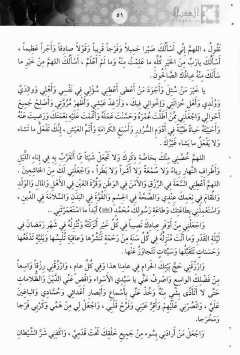 ٥٩
تَقُولُ ، اللهم إنِّي أَسأَلُكَ صَبْراً جَمِيلاً وَفَرَجاً قَرِيباً وَقَوْلاً صَادِقاً وَأَجْراً عَظِيماً ،
أَسأَلُكَ يَا رَبِّ مِنَ الخَيْرِ كُلِّهِ مَا عَلِمْتُ مِنْهُ وَمَا لَمْ أَعْلَمْ ، أَسأَلُكَ اللهمَّ مِنْ خَيْرِ مَا
سَأَلَكَ مِنْهُ عِبَادُكَ الصَّالِحُونَ .
يَا خَيْرَ مَنْ سُئِلَ وَأَجْوَدَ مَنْ أَعْطَى أَعْطِنِي سُؤْلِي فِي نَفْسِي وَأَهْلِي وَوَالِدَيَّ
وَوُلْدِي وَأَهْلِ حُزَانَتِي وَإِخْوَانِي فِيكَ ، وَأَرْغِدْ عَيْشِي وَأَظْهِرْ مُرُوَّتِي وَأَصْلِحْ جَمِيعَ
أَحْوَالِي وَاجْعَلْنِي مِمَّنْ أَطَلْتَ عُمُرَهُ وَحَسَّنْتَ عَمَلَهُ وَأَتْمَمْتَ عَلَيْهِ نِعْمَتَكَ وَرَضِيتَ عَنْهُ
وَأَحْيَيْتَهُ حَيَاةً طَيِّبَةً فِي أَدْوَمِ السُّرُورِ وَأَسْبَغِ الكَرَامَةِ وَأَتَمِّ العَيْشِ ، إِنَّكَ تَفْعَلُ مَا تَشَاءُ
وَلَا يَفْعَلُ مَا يَشَاءُ غَيْرُكَ .
اللهمَّ خُصَّنِي مِنْكَ بِخَاصَّةِ ذِكْرِكَ وَلَا تَجْعَلْ شَيْئاً مِمَّا أَتَقَرَّبُ بِهِ فِي آنَاءِ اللَّيْلِ
وَأَطْرَافِ النَّهَارِ رِيَاءً وَلَا سُمْعَةً وَلَا أَشَراً وَلَا بَطَراً ، وَاجْعَلْنِي لَكَ مِنَ الخَاشِعِينَ .
اللهمَّ أَعْطِنِي السَّعَةَ فِي الرِّزْقِ وَالأَمْنَ فِي الوَطَنِ وَقُرَّةَ العَيْنِ فِي الأَهْلِ وَالمَالِ وَالوَلَدِ
وَالمُقَامَ فِي نِعَمِكَ عِنْدِي وَالصِّحَّةَ فِي الجِسْمِ وَالقُوَّةَ فِي البَدَنِ وَالسَّلَامَةَ فِي الدِّينِ ،
وَاسْتَعْمِلْنِي بِطَاعَتِكَ وَطَاعَةِ رَسُولِكَ مُحَمَّدٍ أَبَداً مَا اسْتَعْمَرْتَنِي .
وَاجْعَلْنِي مِنْ أَوْفَرِ عِبَادِكَ نَصِيباً فِي كُلِّ خَيْرٍ أَنْزَلْتَهُ وَتُنْزِلُهُ فِي شَهْرِ رَمَضَانَ فِي
لَيْلَةِ القَدْرِ وَمَا أَنْتَ مُنْزِلُهُ فِي كُلِّ سَنَةٍ مِنْ رَحْمَةٍ تَنْشُرُهَا وَعَافِيَةٍ تُلْبِسُهَا وَبَلِيَّةٍ تَدْفَعُهَا
وَحَسَنَاتٍ تَتَقَبَّلُهَا وَسَيِّئَاتٍ تَتَجَاوَزُ عَنْهَا .
وَارْزُقْنِي حَجَّ بَيْتِكَ الحَرَامِ فِي عَامِنَا هَذَا وَفِي كُلِّ عَامٍ ، وَارْزُقْنِي رِزْقاً وَاسِعاً
مِنْ فَضْلِكَ الوَاسِعِ وَاصْرِفْ عَنِّي يَا سَيِّدِي الأَسْوَاءَ وَاقْضِ عَنِّي الدَّيْنَ وَالظُّلَامَاتِ
حَتَّى لَا أَتَأَذَّى بِشَيْءٍ مِنْهُ وَخُذْ عَنِّي بِأَسْمَاعِ وَأَبْصَارِ أَعْدَائِي وَحُسَّادِي وَالبَاغِينَ
عَلَيَّ ، وَانْصُرْنِي عَلَيْهِمْ وَأَقِرَّ عَيْنِي ، وَفَرِّحْ قَلْبِي ، وَاجْعَلْ لِي مِنْ هَمِّي وَكَرْبِي فَرَجاً
وَمَخْرَجاً .
وَاجْعَلْ مَنْ أَرَادَنِي بِسُوءٍ مِنْ جَمِيعِ خَلْقِكَ تَحْتَ قَدَمَيَّ ، وَاكْفِنِي شَرَّ الشَّيْطَانِ